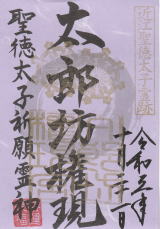 近江聖徳太子霊跡
令和三年
十月二十一日
太郎坊権現
聖徳太子祈願霊神